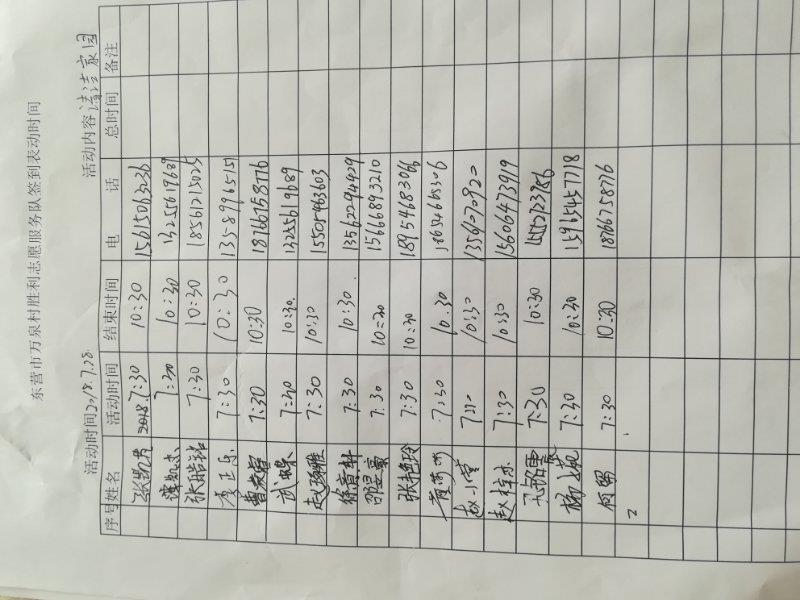 东营市万泉村胜利志愿服务队签到表动时间
活动时间2018.7.28 活动内容 清洁家园
序号 姓名 活动时间 结束时间 电 话 总时间 备注
2018.7:30 10:30 15615063236
7:30 10:30 13255619689
张皓 7:30 10:30 18561215025
李正乐 7:30 10:30 13589965151
曹 7:30 10:30 18766758776
武 7:30 10:30 13255619689
赵 7:30 10:30 15505463603
徐 7:30 10:30 13562294429
邵 7:30 10:30 15666893210
张艳玲 7:30 10:30 18954683066
7:30 10:30 18654665306
赵小 7:30 10:30
赵梓亦 7:30 10:30 15606473919
孔 7:30 10:30
杨 7:30 10:30 15965457718
何 7:30 10:30 18766758776